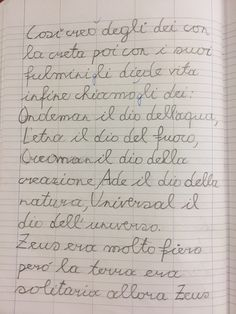 Così creò degli dei con
la creta poi con i suoi
fulmini gli diede vita
infine chiamò gli dei:
Ondeman il dio dellaqua,
L'etna il dio del fuoco,
Creoman il dio della
creazione, Ade il dio della
natura, Universal il
dio dell'universo.
Zeus era molto fiero
però la terra era
solitaria allora Zeus